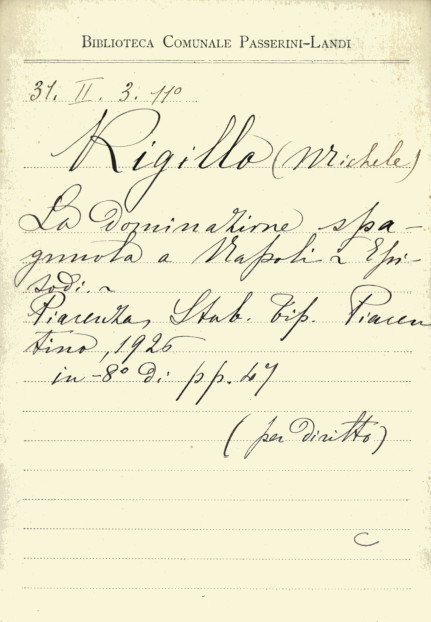 BIBLIOTECA COMUNALE PASSERINI-LANDI
31. II. 3. 11º
Rigillo (Michele)
La dominazione spa-
gnuola a Napoli ~ Epi-
sodi. ~
Piacenza, Stab. Tip. Piacen
tino, 1926
in-8º di pp. 47
(per diritto)
C